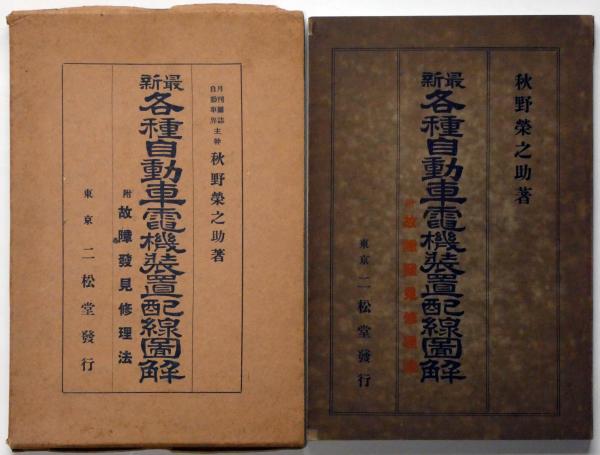 月刊雜誌
自動車界
主幹 秋野榮之助著
最新
各種自動車電機装置配線圖解
附 故障發見修理法
東京 二松堂發行
秋野榮之助著
最新
各種自動車電機装置配線圖解
附 故障發見修理法
東京 二松堂發行